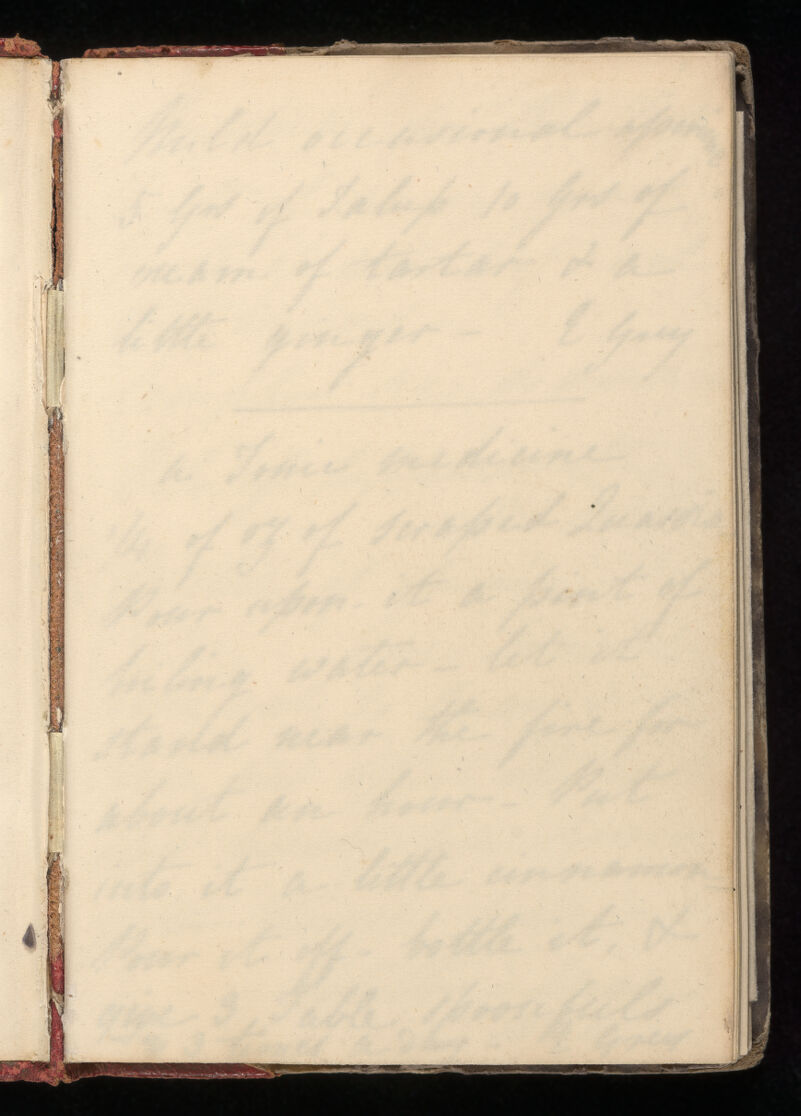 Mild occasional
5 Grs of Jalap 10 Grs of
cream of tartar & a
little ginger – E Grey
a Tonic medicine
1/4 of oz of scraped Quassia
Pour upon it a pint of
boiling water – let it
stand near the fire for
about an hour – Put
into it a little cinnamon
Pour it off – bottle it, &
give 3 Table spoonfuls
E Grey